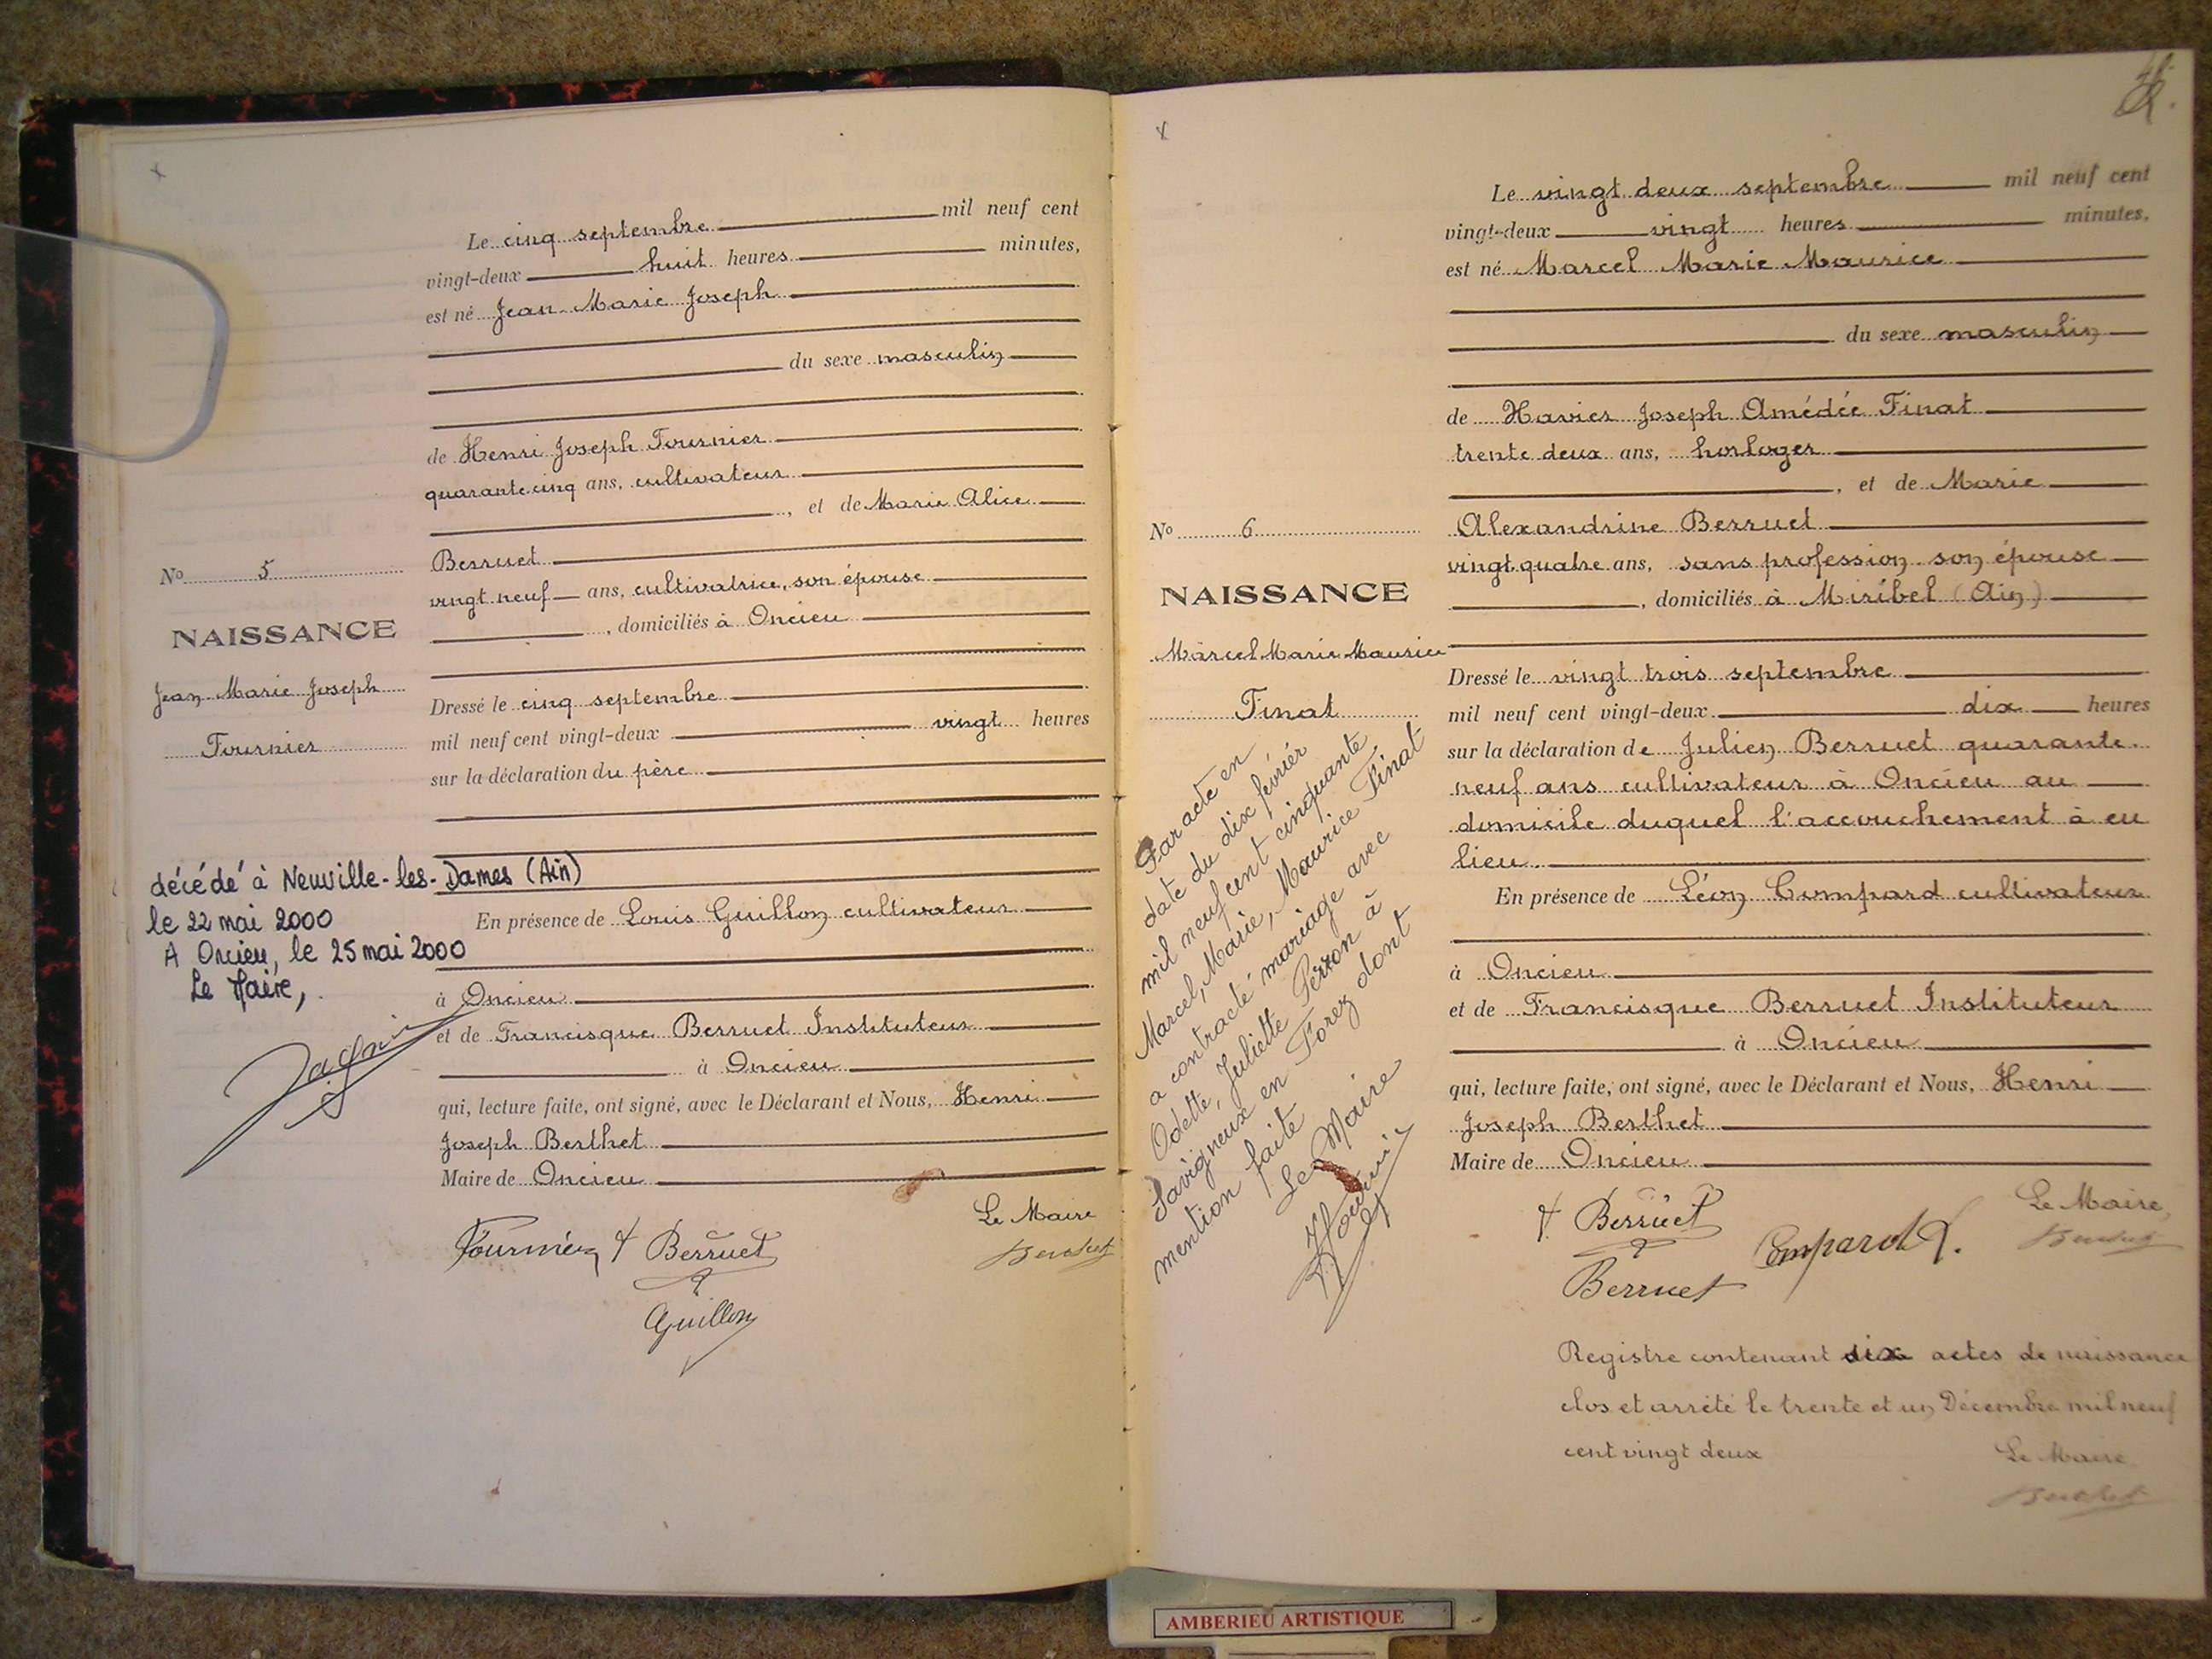 Le cinq septembre mil neuf cent
vingt-deux huit heures minutes,
est né Jean-Marie Joseph
du sexe masculin
de Henri Joseph Fournier
quarante cinq ans, cultivateur
, et de Marie Alice
Berruet
vingt neuf ans, cultivatrice, son épouse
, domiciliés à Oncieu
Dressé le cinq septembre
mil neuf cent vingt-deux vingt heures
sur la déclaration du père
En présence de Louis Guillon cultivateur
à Oncieu
et de Francisque Berruet Instituteur
à Oncieu
qui, lecture faite, ont signé, avec le Déclarant et Nous, Henri
Joseph Berthet
Maire de Oncieu
Le Maire
Fournier F Berruet Berthet
Guillon
No 5
NAISSANCE
Jean-Marie Joseph
Fournier
décédé à Neuville-les-Dames (Ain)
le 22 mai 2000
A Oncieu, le 25 mai 2000
Le Maire,
Le vingt deux septembre mil neuf cent
vingt-deux vingt heures minutes,
est né Marcel Marie Maurice
du sexe masculin
de Xavier Joseph Amédée Finat
trente deux ans, horloger
, et de Marie
Alexandrine Berruet
vingt quatre ans, sans profession son épouse
, domiciliés à Miribel (Ain)
Dressé le vingt trois septembre
mil neuf cent vingt-deux dix heures
sur la déclaration de Julien Berruet quarante
neuf ans cultivateur à Oncieu au
domicile duquel l'accouchement à eu
lieu
En présence de Léon Compard cultivateur
à Oncieu
et de Francisque Berruet Instituteur
à Oncieu
qui, lecture faite, ont signé, avec le Déclarant et Nous, Henri
Joseph Berthet
Maire de Oncieu
Le Maire,
F Berruet Compard L. Berthet
Berruet
Registre contenant six actes de naissance
clos et arrêté le trente et un Décembre mil neuf
cent vingt deux Le Maire
Berthet
No 6
NAISSANCE
Marcel Marie Maurice
Finat
Par acte en
date du dix février
mil neuf cent cinquante
Marcel, Marie, Maurice Finat
a contracté mariage avec
Odette, Juliette Perron à
Savigneux en Forez dont
mention faite
Le Maire
AMBERIEU ARTISTIQUE